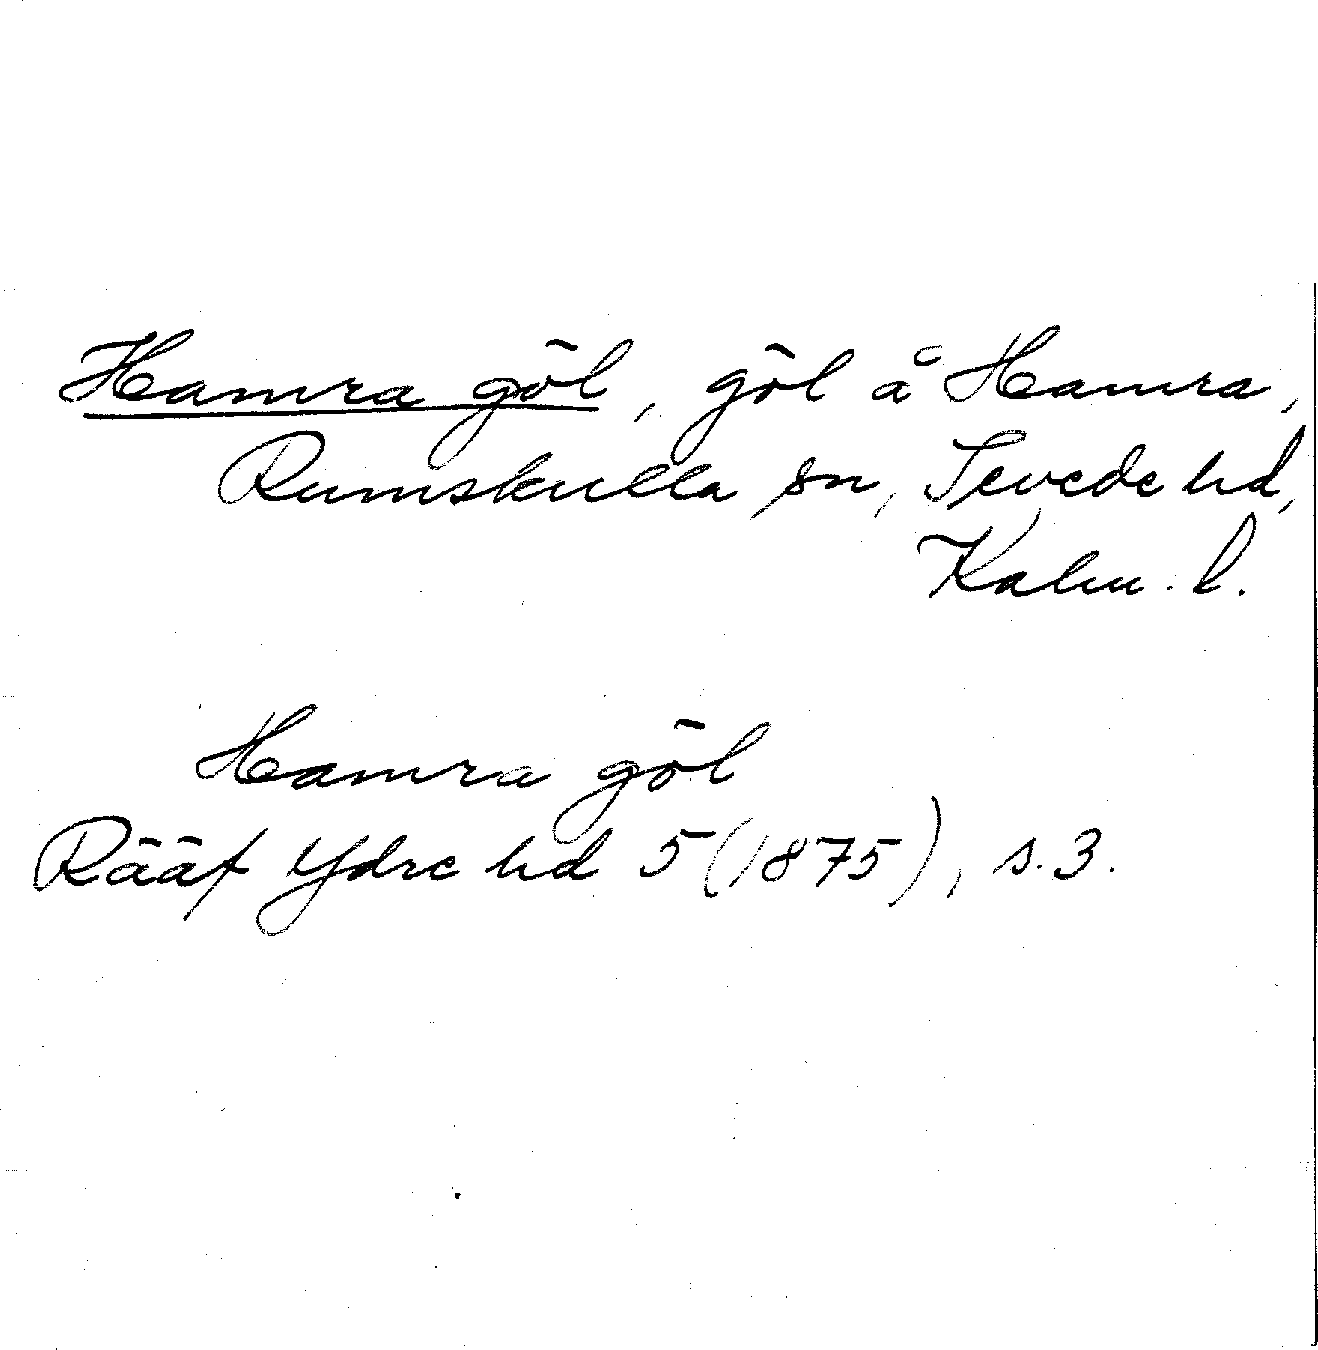 Hamra göl, göl å Hamra,
Rumskulla sn, Sevede hd,
Kalm. l.
Hamra göl
Rääf Ydre hd 5 (1875), s. 3.